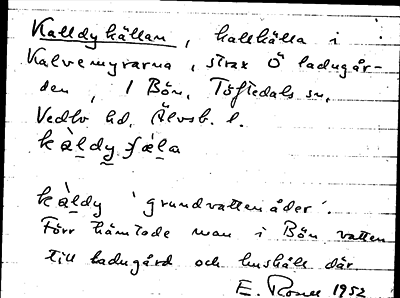 Kalldykällan, kallkälla i
Kalvemyrarna, strax Ö ladugår-
den, 1 Bön, Töftedals sn,
Vedbo hd, Älvsb. l.
kàldy
kàldy 'grundvattenåder'.
Förr hämtade man i Bön vatten
till ladugård och hushåll där
E. 1952